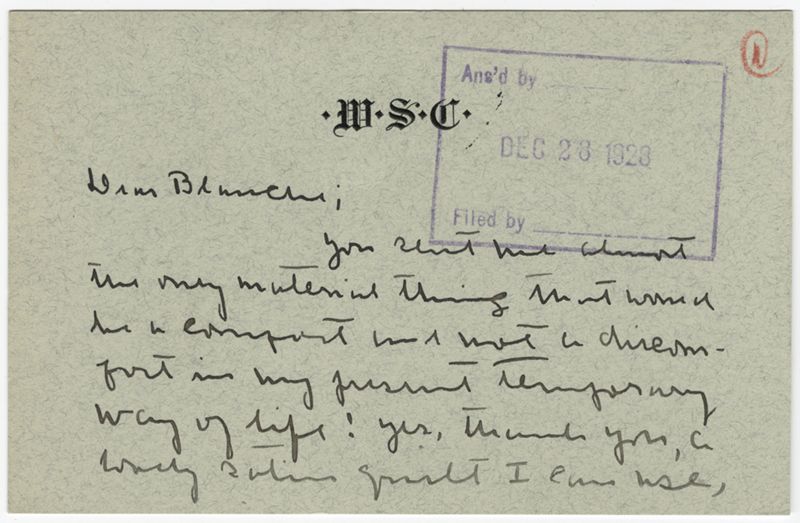 Ans'd by
·W·S·C·
DEC 28 1928
Filed by
Dear Blanche;
You sent me almost
the only material thing that would
be a comfort and not a discom-
fort in my present temporary
way of life! Yes, thank you, a
lovely satin quilt I can use,